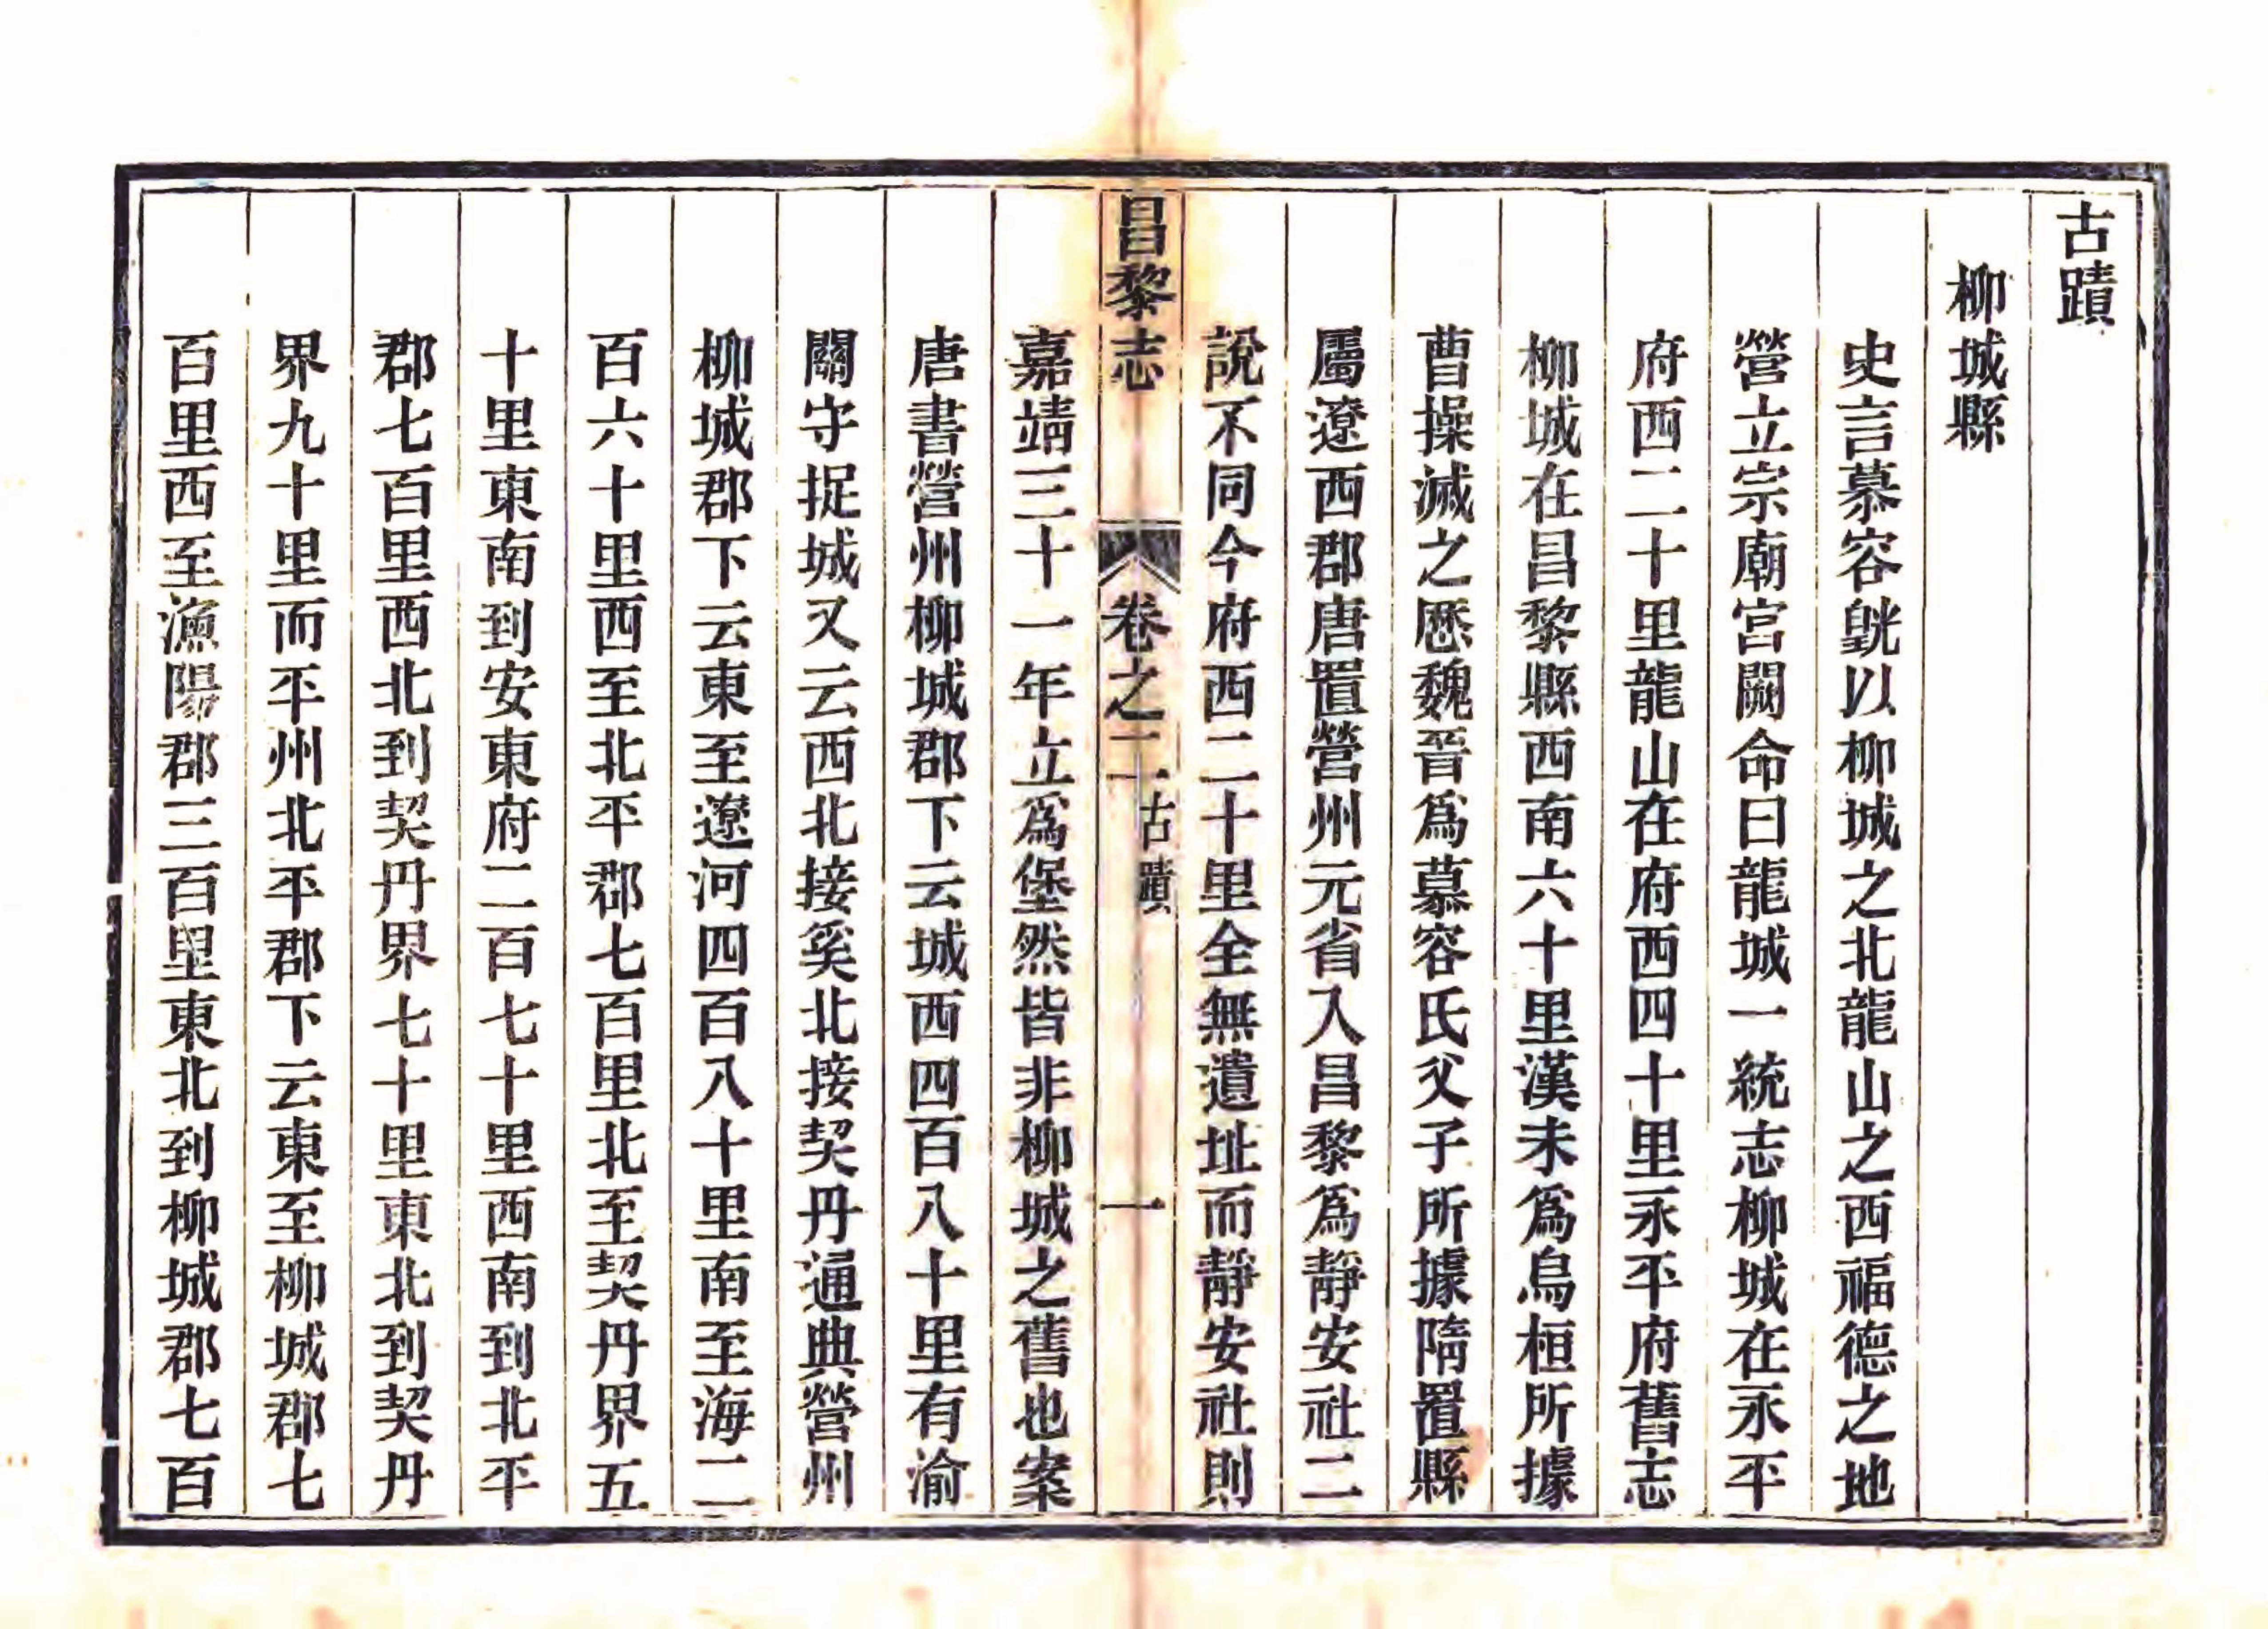 古蹟
柳城縣
史言慕容皝以柳城之北龍山之西福德之地
營立宗廟宮闕命曰龍城一統志柳城在永平
府西二十里龍山在府西四十里永平府舊志
柳城在昌黎縣西南六十里漢末爲烏桓所據
曹操滅之歷魏晉爲慕容氏父子所據隋置縣
屬遼西郡唐置營州元省入昌黎爲靜安社二
說不同今府西二十里全無遺址而靜安社則
昌黎志 卷之二 古蹟 一
嘉靖三十一年立爲堡然皆非柳城之舊也案
唐書營州柳城郡下云城西四百八十里有渝
關守捉城又云西北接奚北接契丹通典營州
柳城郡下云東至遼河四百八十里南至海二
百六十里西至北平郡七百里北至契丹界五
十里東南到安東府二百七十里西南到北平
郡七百里西北到契丹界七十里東北到契丹
界九十里而平州北平郡下云東至柳城郡七
百里西至漁陽郡三百里東北到柳城郡七百